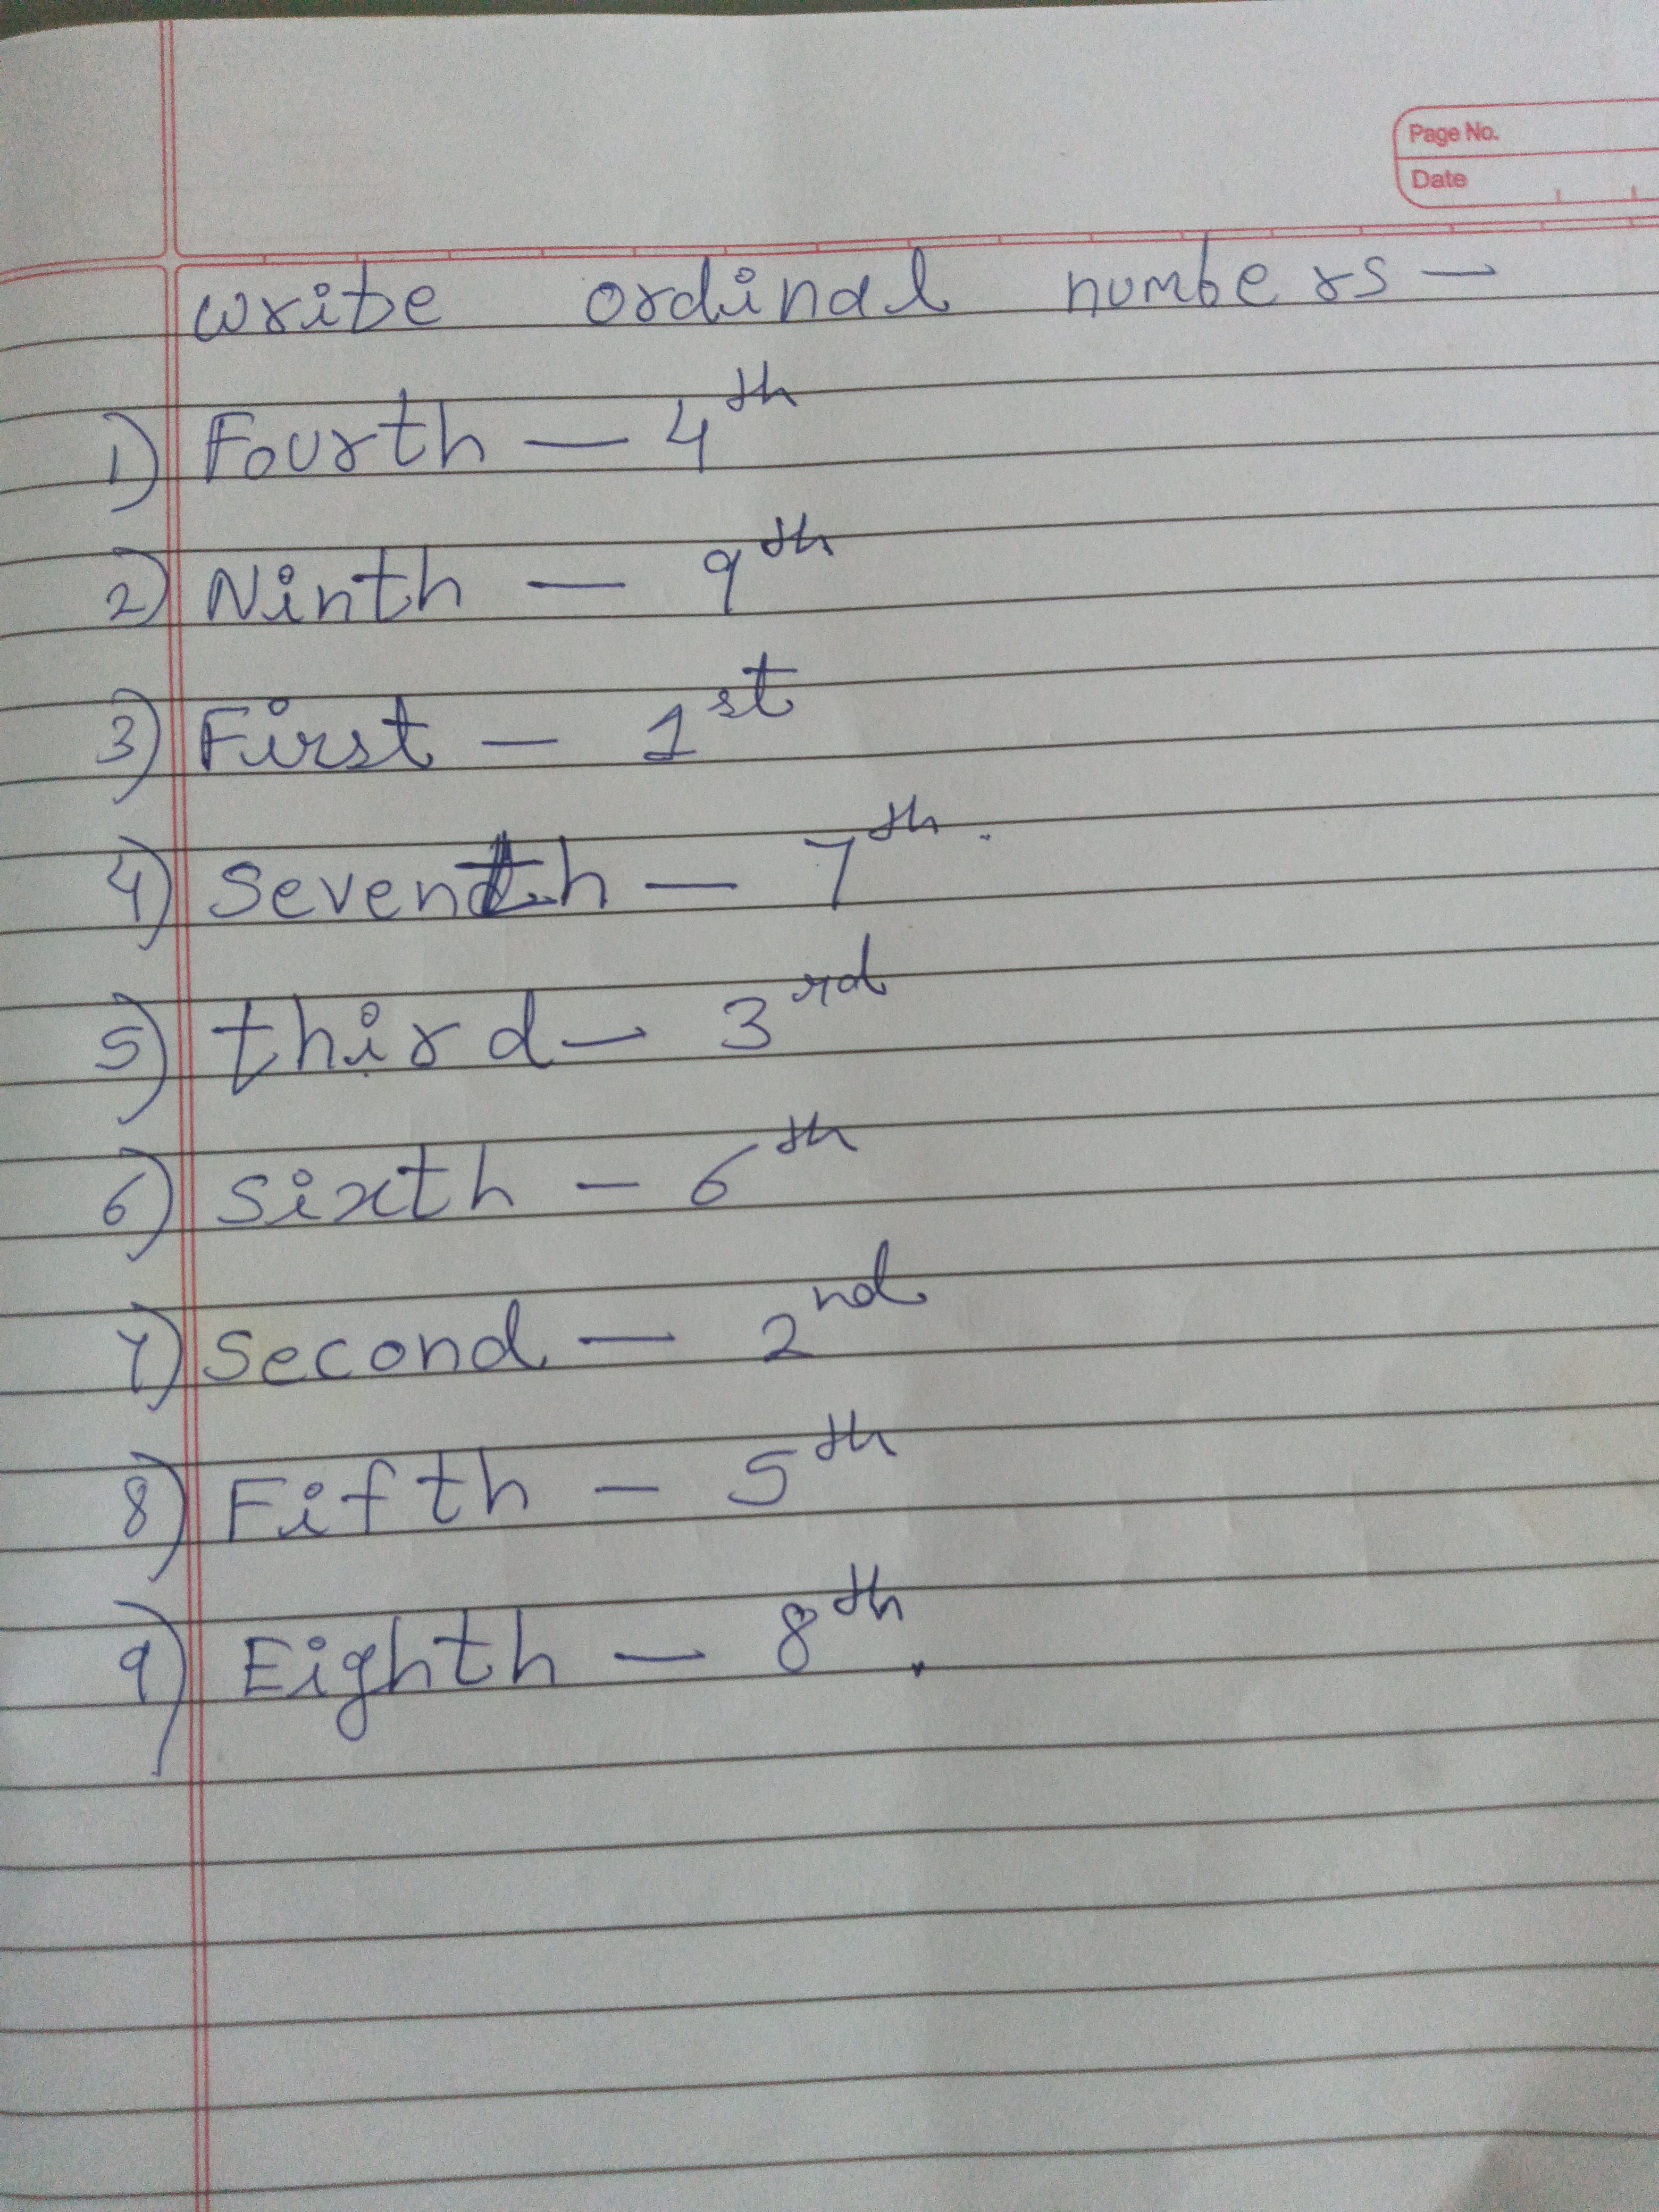 Page No.
Date
write ordinal numbers —
1) Fourth — 4th
2) Ninth — 9th
3) First — 1st
4) Seventh — 7th.
5) third — 3rd
6) Sixth — 6th
7) Second — 2nd
8) Fifth — 5th
9) Eighth — 8th.